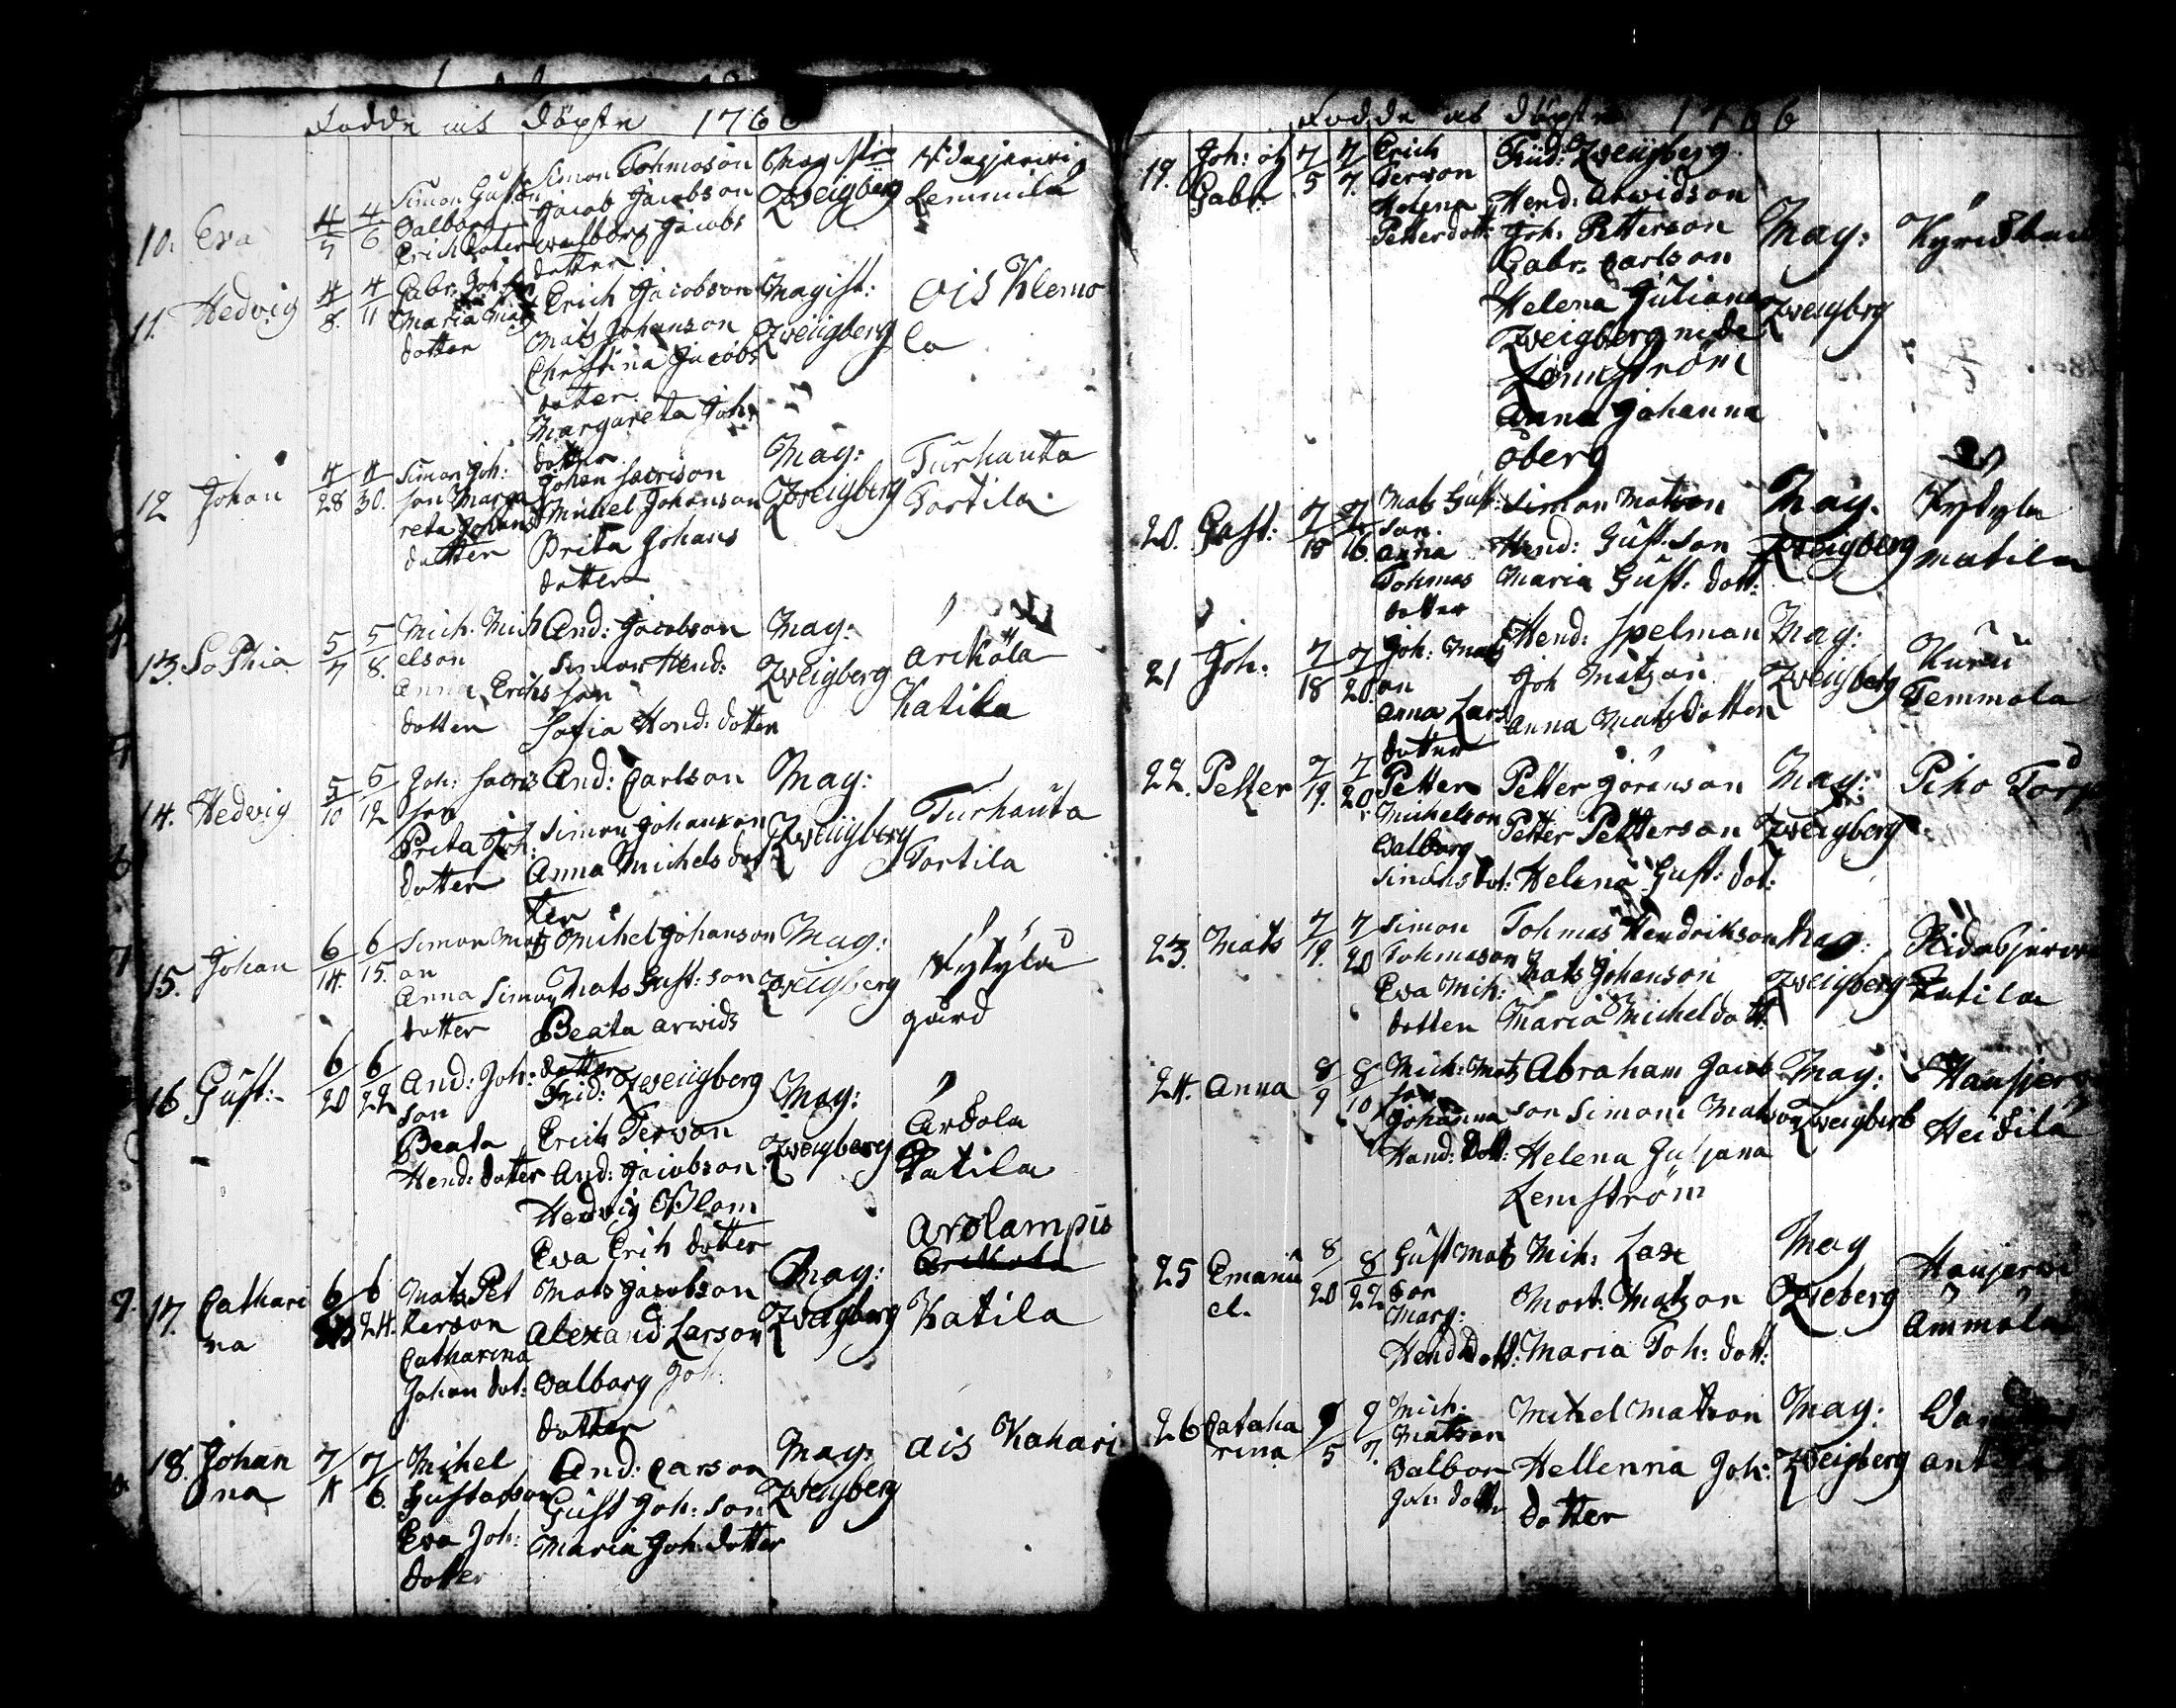 Födde och döpte 1766
10. Eva 4/7 4/6 Simon Gustafson Valborg Erich dotter
Simon Tohmason
Jacob Jacobson
Walborg Jacobs
dotter
Magistr
Zweigberg
Lemmila
11. Hedvig 4/8. 4/11 Gabr: Joh:son
Maria Mats
dotter
Erich Jacobson
Mats Johanson
Christina Jacobs
dotter.
Margareta Joh:
dotter
Magist:
Zweigberg
ois Klemo
la
12 Johan 4/28 4/30. Simon Joh:
son Marga
reta Johans
dotter
Johan
Michel Johanson
Brita Johans
dotter
Mag:
Zweigberg
Turhauta
Tortila
13. SoPhia 5/7 5/8. Mich: Mich
elson
Anna Erichs
dotter
And: Jacobson
Simon Hend:
son
Sofia Hend: dotter
Mag:
Zweigberg
Arikola
Katila
14. Hedvig 5/10 5/12 Joh:
son
Brita Joh:
dotter
And: Carlson
Simon Johanson
Anna Michels dot
ter
Mag:
Zweigberg
Turhauta
Tortila
15. Johan 6/14. 6/15. Simon Mats
on
Anna Simon
dotter
Mihel Johanson
Mats Gust: son
Beata Arwids
dotter
Mag:
Zweigberg
Nylyla
gård
16 Gust: 6/20 6/22 And: Joh:
son
Beata
Hend: dotter
Frid: Zweigberg
Erich Tervon
And: Jacobson
Hedvig Blom
Eva Erih dotter
Mag:
Zweigberg
Katila
17. Cathari
na 6 6/24. Mats Pet
terson
Catharina
Johan dot:
Mats Jacobson
Alexand Larson
Valborg Joh:
dotter
Mag:
Zweigberg
Arolampis
Katila
18. Johan
na 7/4 7/6. Mihel
Gustavson
Eva Joh:
dotter
And: Carson
Gust Joh: son
Maria Joh: dotter
Mag:
Zweigberg
ais Kahari
Födde och döpte 1766
19. Joh: och
Gabr: 7/5 7/7. Erich
Terwon
Helena
Petterdott:
Frid: Zweigberg
Hend: Arwidson
Joh: Petterson
Gabr. Carlson
Helena Juliana
Zweigberg
Lemström
Anna Johanna
öberg
Mag:
Zweigbrg
20. Gust: 7/15 7/16. Mats Gust:
son.
Anna
Tohmas
dotter
Simon Matson
Hend: Gust: son
Maria Gust: dott:
Mag.
Zweigberg
matila
21 Joh: 7/18 7/20. Joh: Mats
on
Anna Lars
dotter
Hend: Spelman
Joh Matzon
Anna Matsdotter
Mag:
Zweigberg
Kuru
Temmola
22. Petter 7/19. 7/20. Petter
Michelson
Valborg
Simons dot:
Petter Göranson
Petter Petterson
Helena Gust: dot:
Mag:
Zweigberg
Piho Torp
23. Mats 7/19. 7/20 Simon
Tohmason
Eva Mih:
dotter
Tohmas Hendrikson
Mats Johanson
Maria Michel dott:
Mag:
Zweigberg
Katila
24. Anna 8/9 8/10 Mich: Mats
son
Johanna
Hend: dott:
Abraham Jacob
son Simon Matson
Helena Juljana
Lemström
Mag:
Zweigberg
Haujerwi
Heidila
25 Emanu
el. 8/20 8/22 Gust Mats
son
Marg:
Hend dott:
Mih: Lax
Mort: Matson
Maria Toh: dott:
Mag
Zweberg
Haujerwi
Ammäla
26 Cataha
rina 9/5 9/7. Mich:
Matson
Valbor
Joh: dotter
Mihel Matson
Hellenna Joh:
dotter
Mag:
Zweigberg